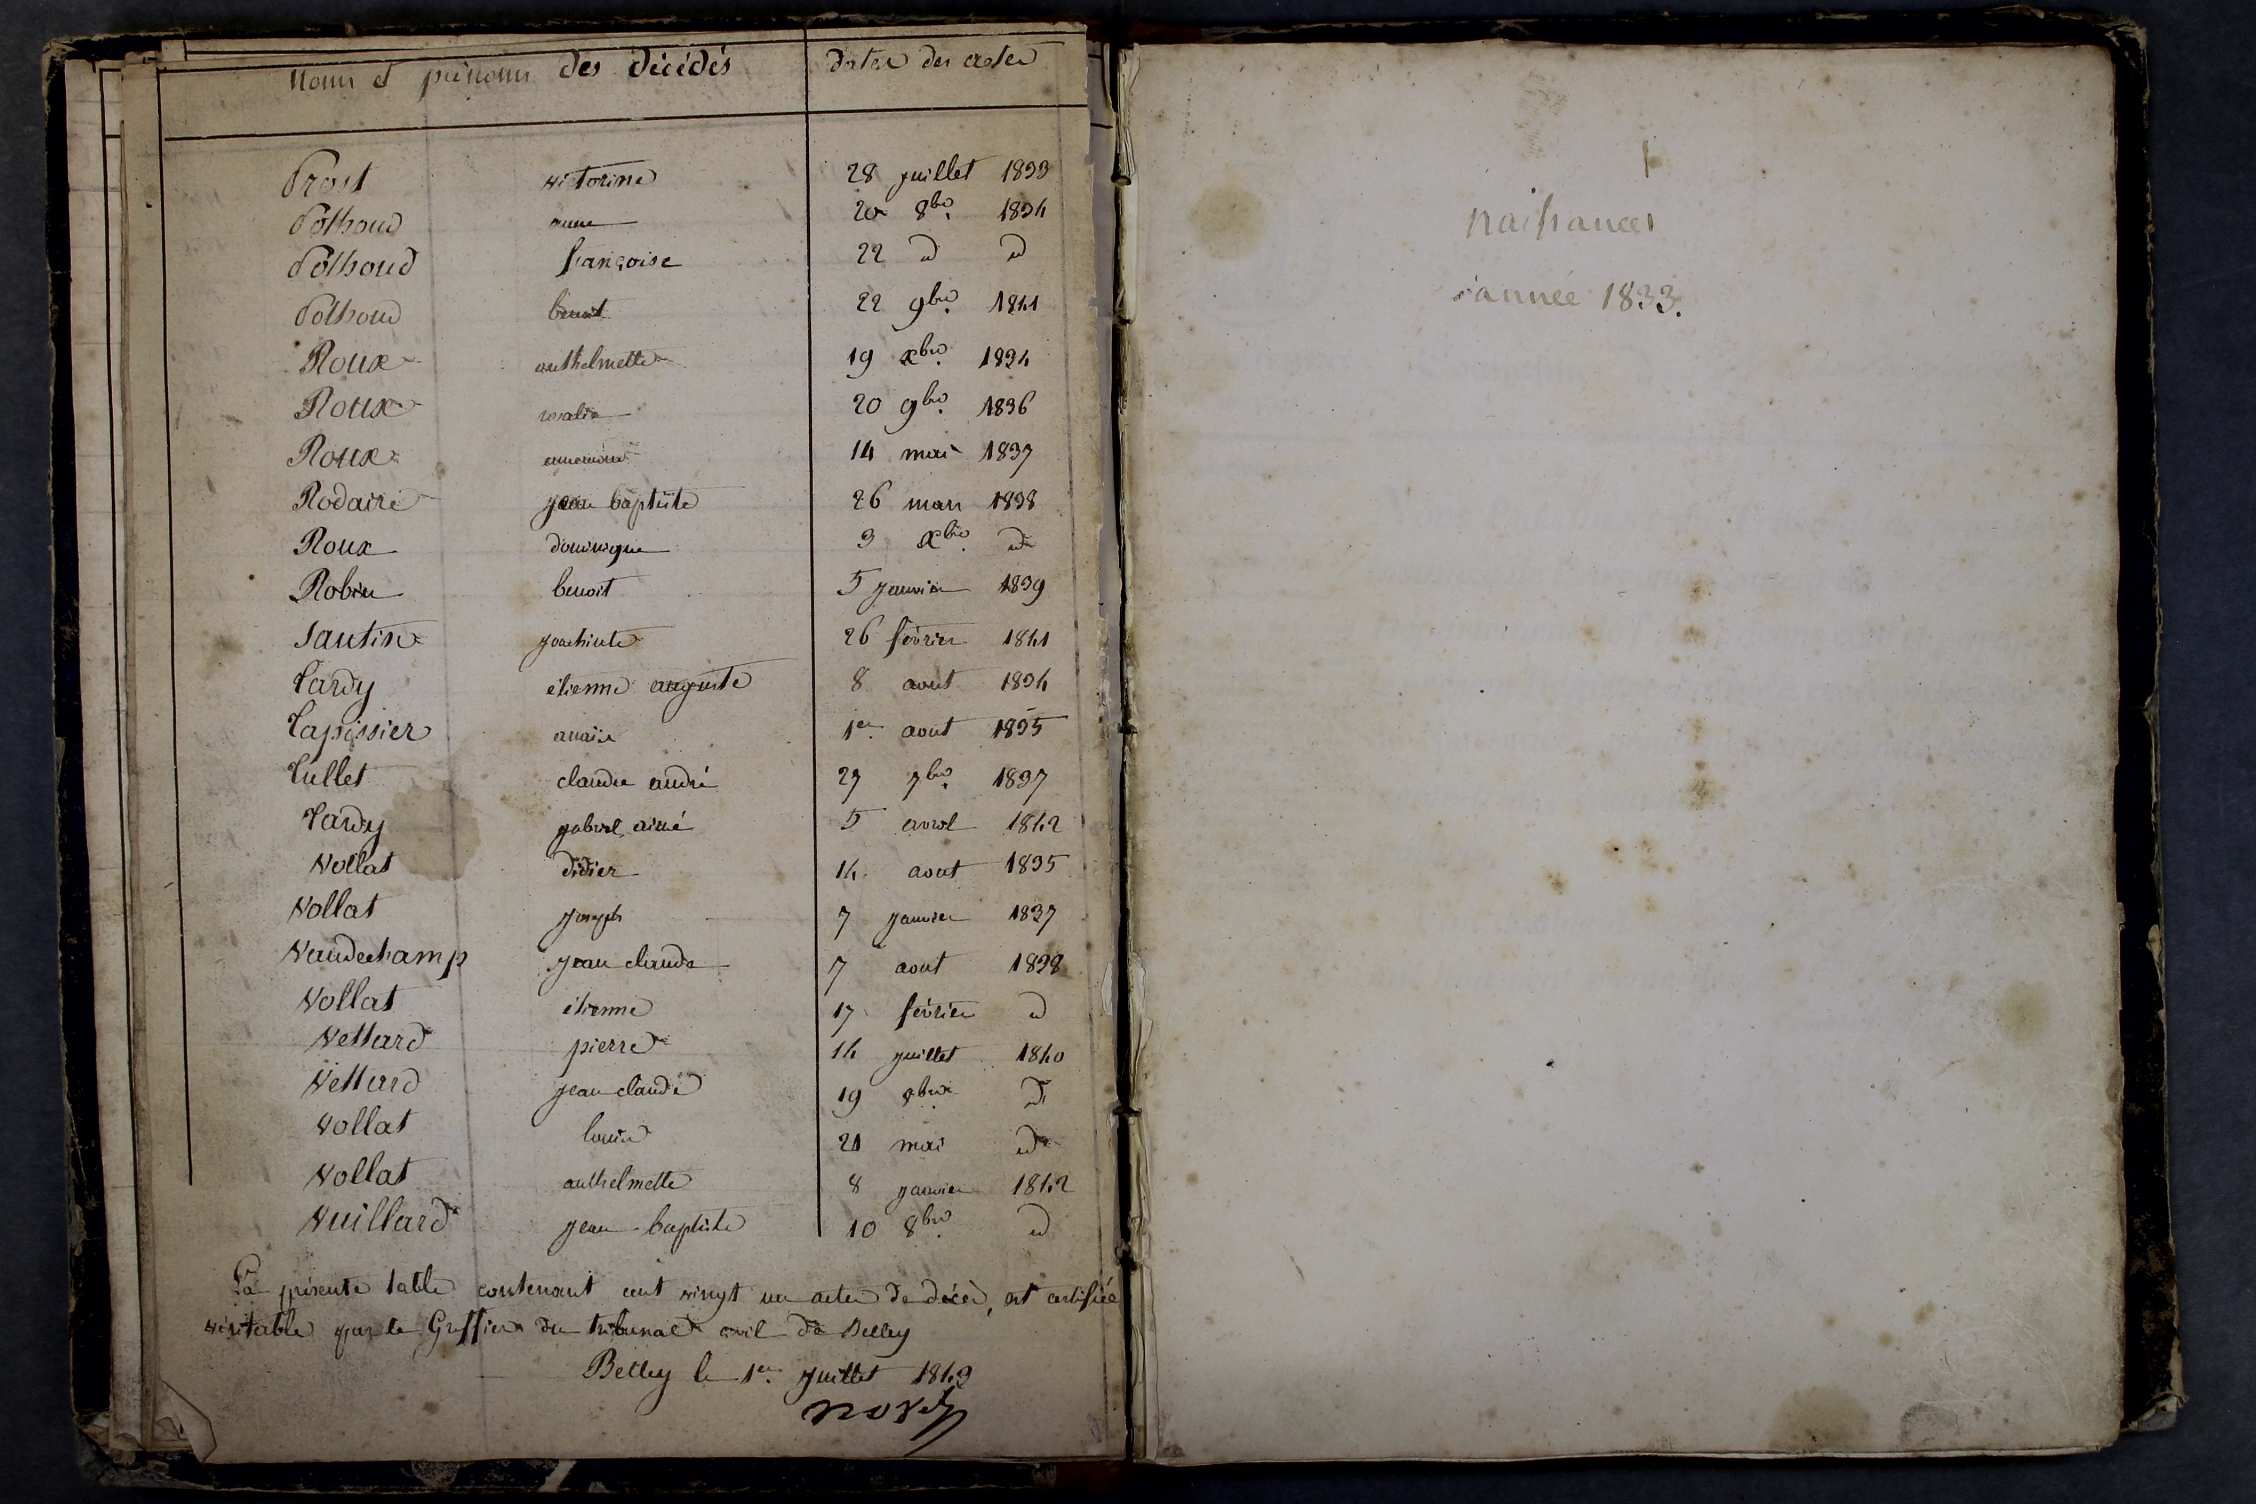 Noms et prénoms des décédés dates des actes
Prost victorine 28 juillet 1833
Pothoud anne 20 8bre. 1834
Pothoud françoise 22 d d
Pothoud benoit 22 9bre. 1841
Roux anthelmette 19 xbre. 1834
Roux rosalie 20 9bre. 1836
Roux 14 mai 1837
Rodaire jean baptiste 26 mars 1838
Roux dominique 3 xbre. d
Robin benoit 5 janvier 1839
Santin 26 février 1841
Tardy etienne auguste 8 aout 1834
Tapissier anaïs 1er. aout 1835
Tullet claude andré 27 7bre. 1837
Tardy gabriel aimé 5 avril 1842
Vollat didier 14 aout 1835
Vollat joseph 7 janvier 1837
Vaudechamp jean claude 7 aout 1838
Vollat étienne 17 février d
Vettard pierre 14 juillet 1840
Vettard jean claude 19 8bre d
Vollat louis 21 mai d
Vollat anthelmette 8 janvier 1842
Vuillard jean-baptiste 10 8bre. d
La présente table contenant cent vingt un actes de décès, est certifiée
véritable par le Greffier du tribunal civil de Belley
Belley le 1er. juillet 1843
naissances
année 1833.